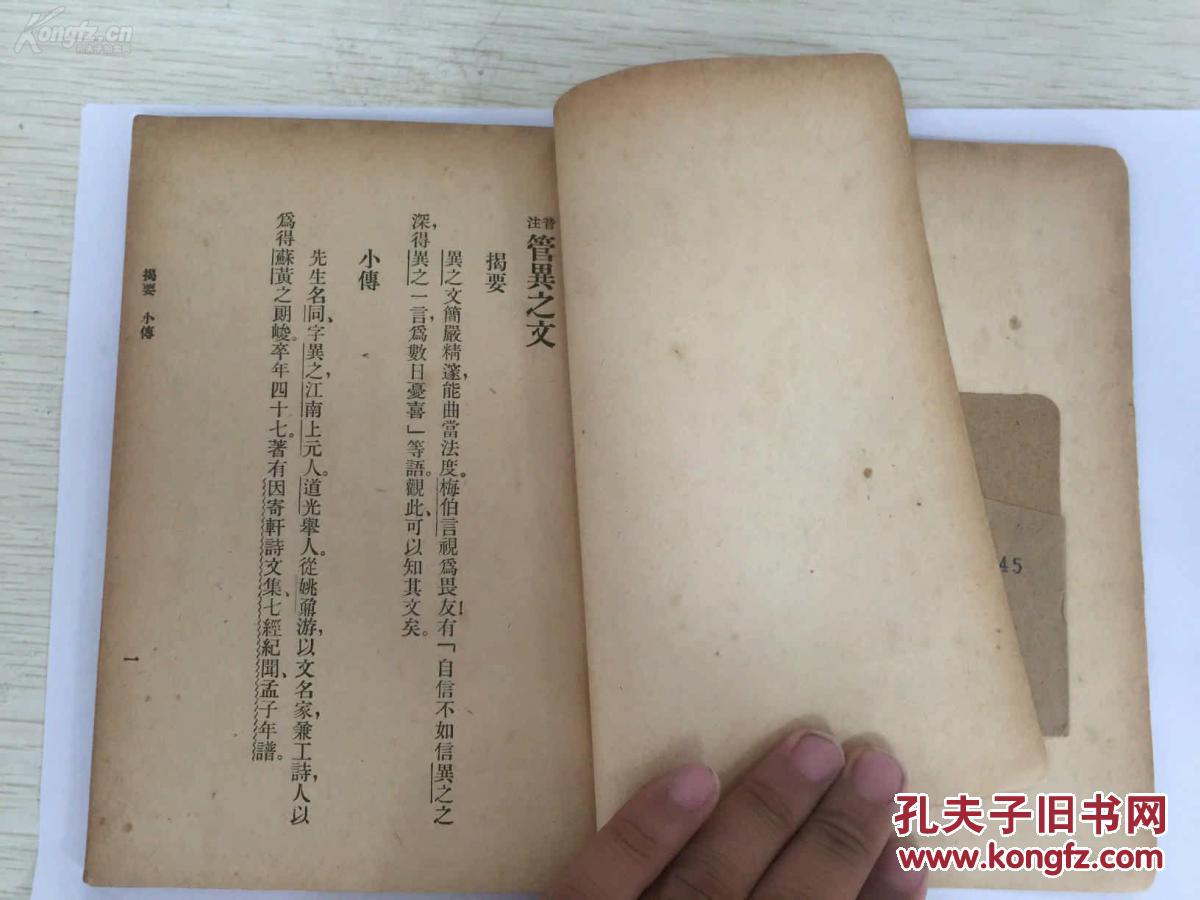 音注 管異之文
揭要
異之文簡嚴精邃,能曲當法度。梅伯言視爲畏友!有「自信不如信異之之
深,得異之一言,爲數日憂喜」等語。觀此、可以知其文矣。
小傳
先生名同、字異之,江南上元人。道光舉人。從姚鼐游,以文名家,兼工詩,人以
爲得蘇黃之朗峻。卒年四十七。著有因寄軒詩文集、七經紀聞、孟子年譜。
揭要 小傳
一
45
Kongfz.cn
孔夫子旧书网
www.kongfz.com